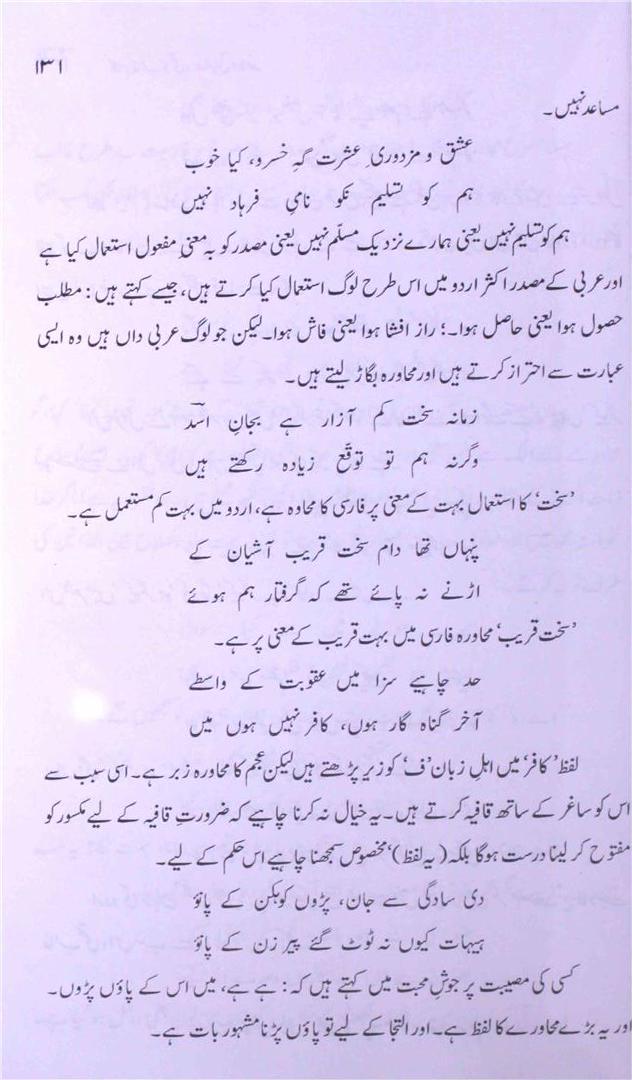 ۱۳۱
مساعد نہیں۔
عشق و مزدوری عشرت گہِ خسرو، کیا خوب
ہم کو تسلیم نکو نامیِ فرہاد نہیں
ہم کو تسلیم نہیں یعنی ہمارے نزدیک مسلّم نہیں یعنی مصدر کو بہ معنی مفعول استعمال کیا ہے
اور عربی کے مصدر اکثر اردو میں اس طرح لوگ استعمال کیا کرتے ہیں، جیسے کہتے ہیں: مطلب
حصول ہوا یعنی حاصل ہوا۔؛ راز افشا ہوا یعنی فاش ہوا۔ لیکن جو لوگ عربی داں ہیں وہ ایسی
عبارت سے احتراز کرتے ہیں اور محاورہ بگاڑ لیتے ہیں۔
زمانہ سخت کم آزار ہے بجانِ اسدؔ
وگرنہ ہم تو توقع زیادہ رکھتے ہیں
’سخت‘ کا استعمال بہت کے معنی پر فارسی کا محاوہ ہے، اردو میں بہت کم مستعمل ہے۔
پنہاں تھا دام سخت قریب آشیان کے
اڑنے نہ پائے تھے کہ گرفتار ہم ہوئے
’سخت قریب‘ محاورہ فارسی میں بہت قریب کے معنی پر ہے۔
حد چاہیے سزا میں عقوبت کے واسطے
آخر گناہ گار ہوں، کافر نہیں ہوں میں
لفظ ’کافر‘ میں اہلِ زبان ’ف‘ کو زیر پڑھتے ہیں لیکن عجم کا محاورہ زبر ہے۔ اسی سبب سے
اس کو ساغر کے ساتھ قافیہ کرتے ہیں۔ یہ خیال نہ کرنا چاہیے کہ ضرورتِ قافیہ کے لیے مکسور کو
مفتوح کر لینا درست ہوگا بلکہ (یہ لفظ) ’مخصوص سمجھنا چاہیے اس حکم کے لیے۔
دی سادگی سے جان، پڑوں کوہکن کے پاؤ
ہیہات کیوں نہ ٹوٹ گئے پیر زن کے پاؤ
کسی کی مصیبت پر جوشِ محبت میں کہتے ہیں کہ: ہے ہے، میں اس کے پاؤں پڑوں۔
اور یہ بڑے محاورے کا لفظ ہے۔ اور التجا کے لیے تو پاؤں پڑنا مشہور بات ہے۔